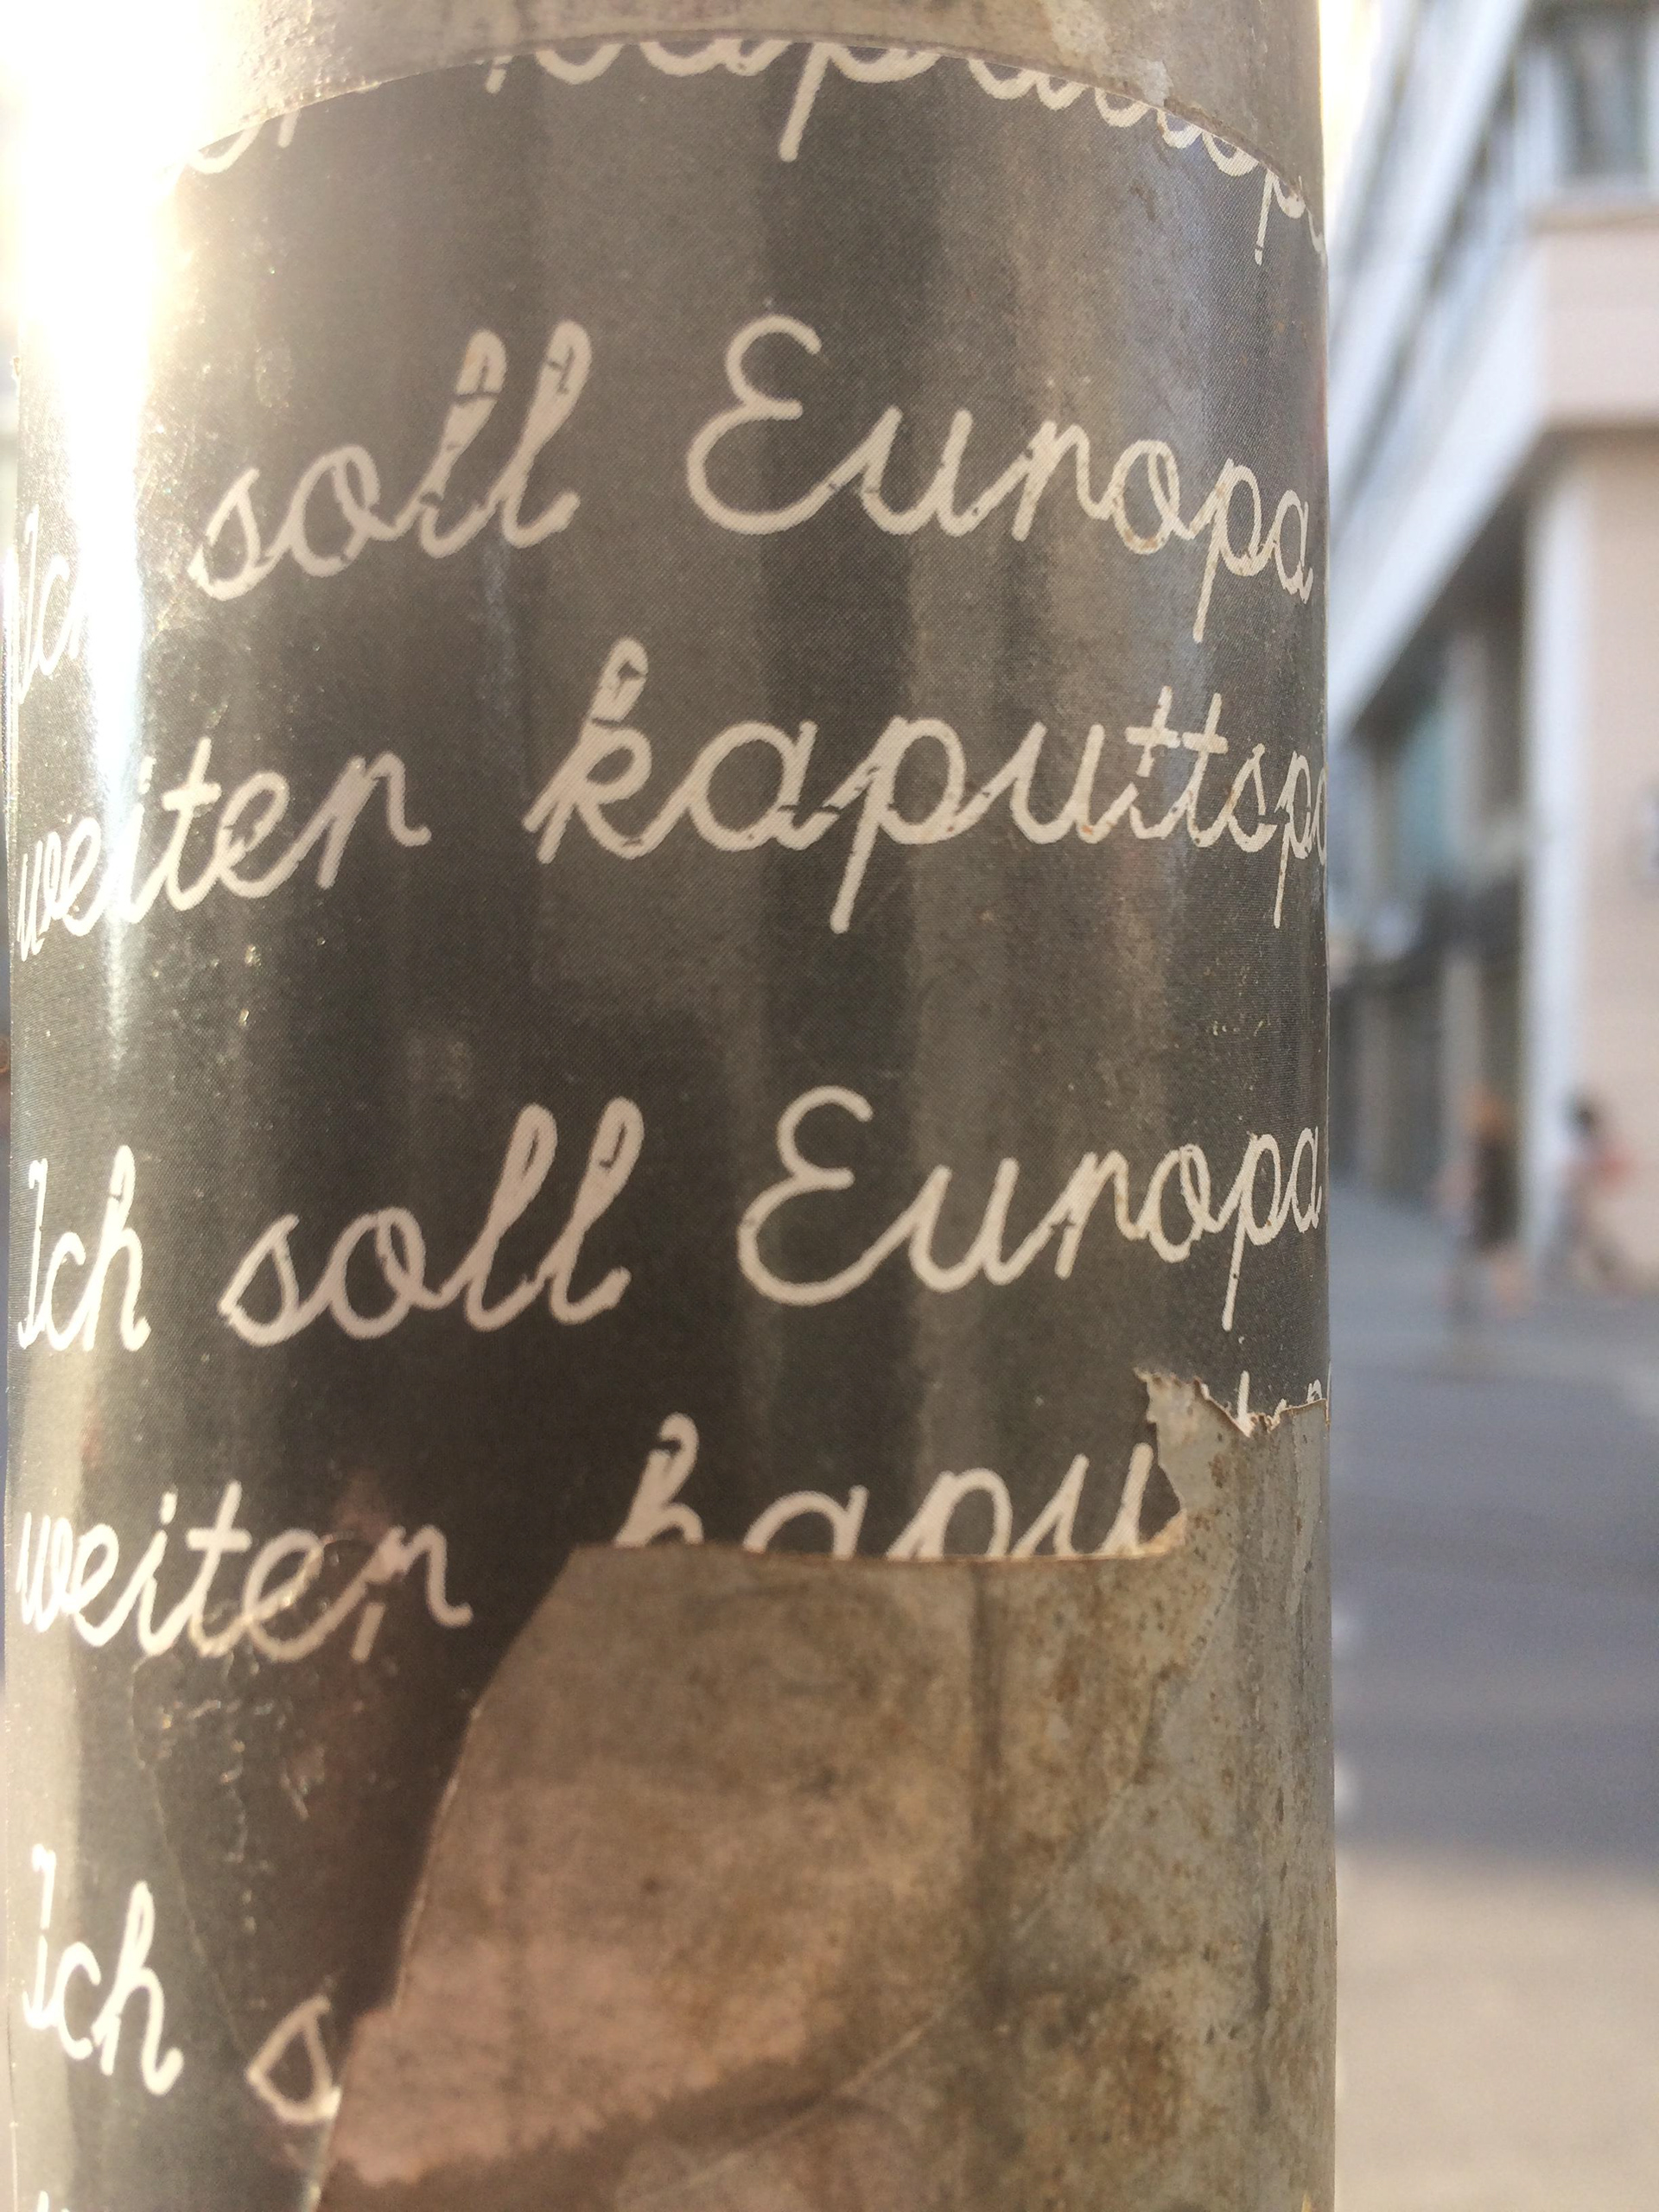 Ich soll Europa
weiter kaputtspa
Ich soll Europa
weiter kapu
Ich s